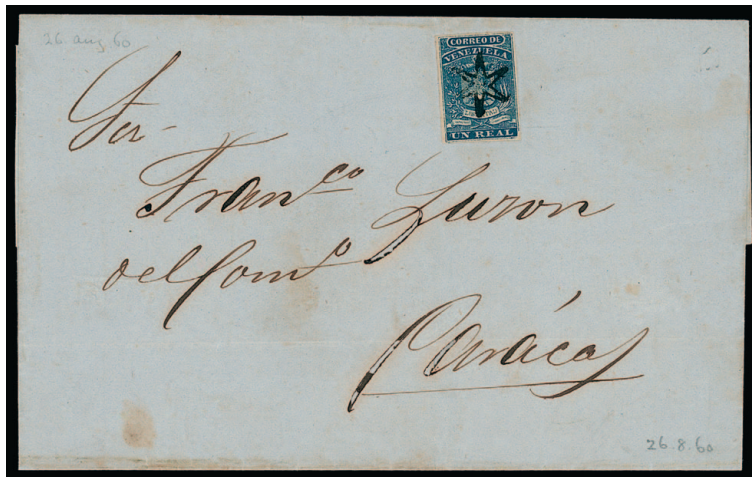 26 aug. 60
CORREO DE
VENEZUELA
UN REAL
Sor
Franco Luzon
del Como
Carácas
26.8.60